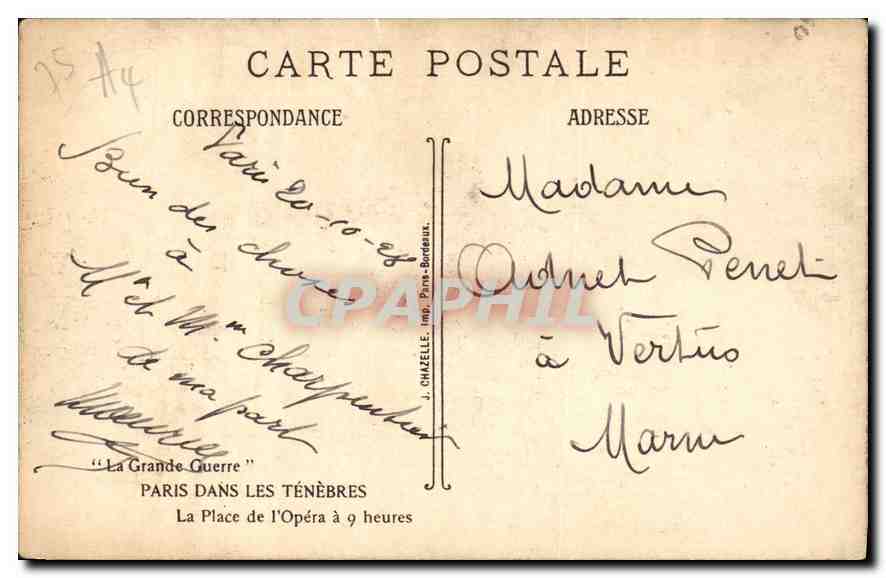 75 A4
CARTE POSTALE
CORRESPONDANCE
Paris 20-10-28
Bien des choses
à
Mr et Mme Charpentier
de ma part
Maurice
"La Grande Guerre"
PARIS DANS LES TÉNÈBRES
La Place de l'Opéra à 9 heures
J. CHAZELLE. Imp. Paris-Bordeaux.
ADRESSE
Madame
Oudinet Perret
à Vertus
Marne
CPAPHIL